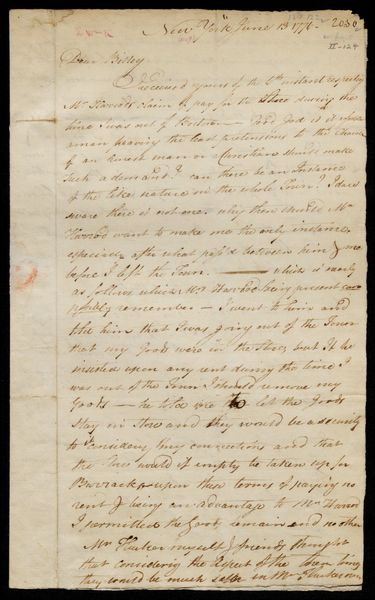 2030
II-124
New York June 13 1776
Dear Billey
I received yours of the instant respecting
Mr Harrods Claim to pay for the Store during the
time I was out of Boston — Good God is it
a man having the least pretentions to the Character
of an honest man or a Christian should make
Such a demand. can there be an Instance
of the like nature in the whole Town. I dare
sware there is not one why then should Mr
Harrod want to make me the only instance
especially after what pass'd between him & me
before I left the Town. — which is nearly
as follows which Mrs Harrod being present can
possibly remember — I went to him and
told him that I was going out of the Town
that my Goods were in the Store but if he
insisted upon any rent during the time I
was out of the Town I should remove my
Goods — he told me to let the Goods
Stay in Store and they would be a security
to considering my connections and that
the Store would if empty be taken up for
Barracks upon these terms of paying no
rent & being an advantage to Mr Harrod
I permitted the Goods remain and no other
Mr Thuker myself & friends thought
that considering the aspect of the times
they would be much safer in Mr